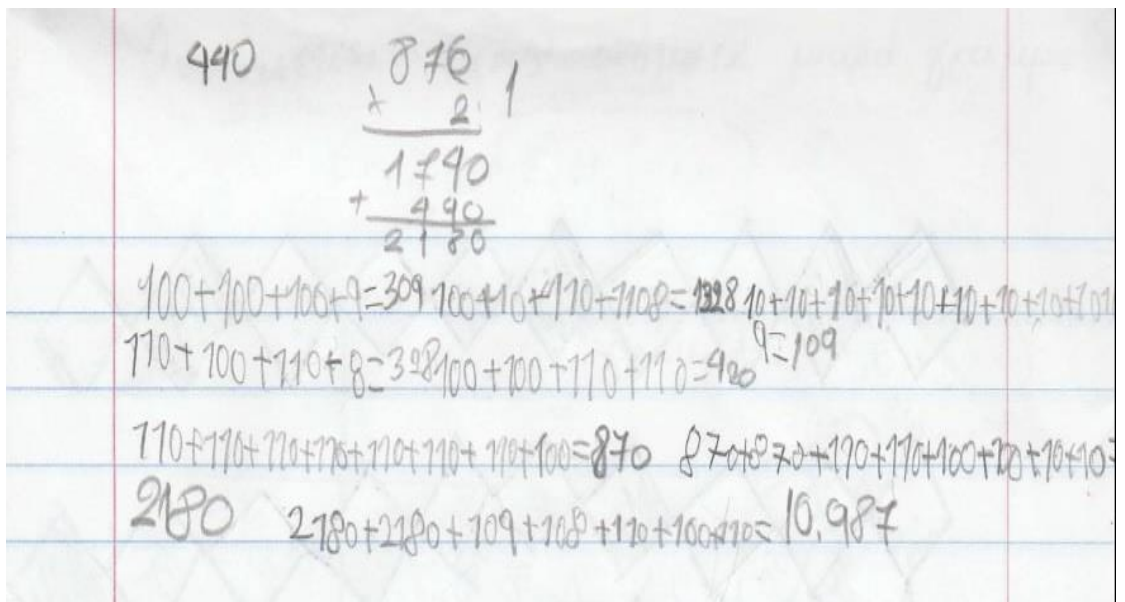 440 876
× 2 1
1740
+ 440
2180
100+100+100+9=309 100+10+110+1108=1328 10+10+10+10+10+10+10+10+10+
9=109
110+100+110+8=328 100+100+110+110=420
110+110+110+110+110+110+110+100=870 870+870+110+110+100+100+10+10=
2180 2180+2180+109+108+110+100+110=10,987